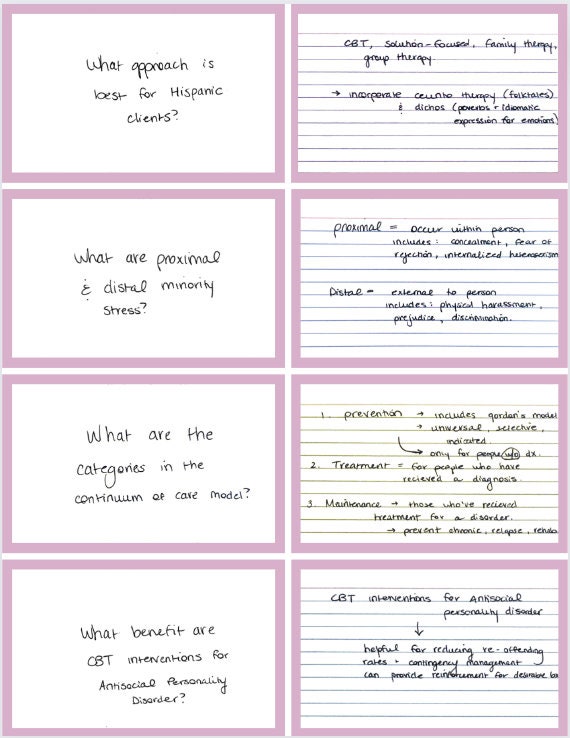 What approach is
best for Hispanic
clients?
CBT, solution-focused, family therapy,
group therapy.
→ incorporate cuento therapy (folktales)
& dichos (proverbs + idiomatic
expression for emotions)
What are proximal
& distal minority
stress?
proximal = occur within person
includes: concealment, fear of
rejection, internalized heterosexism
Distal = external to person
includes: physical harassment,
prejudice, discrimination.
What are the
categories in the
continuum of care model?
1. prevention → includes gordan's model
→ universal, selective,
indicated.
→ only for people w/o dx.
2. Treatment = for people who have
recieved a diagnosis.
3. Maintenance → those who've recieved
treatment for a disorder.
→ prevent chronic, relapse, rehab
What benefit are
CBT interventions for
Antisocial Personality
Disorder?
CBT interventions for Antisocial
personality disorder
↓
helpful for reducing re-offending
rates + contingency management
can provide reinforcement for desirable